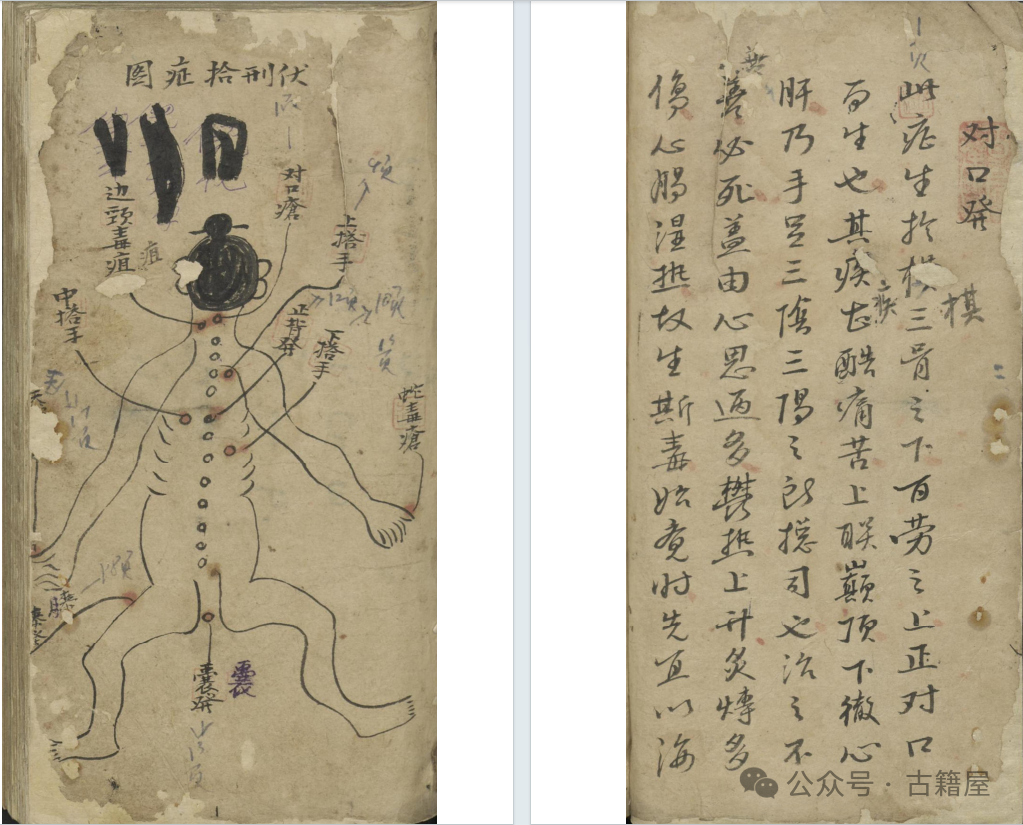 伏刑拾症图
对口瘡
上搭手
边頸毒疽
疽
中搭手
正背發
下搭手
蛇毒瘡
囊發
囊
对口發
此症生於棋三骨之下百劳之上正对口
而生也其疾甚酷痛苦上联巅顶下徹心
肝乃手足三陰三陽之所摠司也治之不
善必死盖由心思過多鬱热上升炙煿多
傷心腸湿热故生斯毒始覚时先宜以海
棋
公众号 · 古籍屋